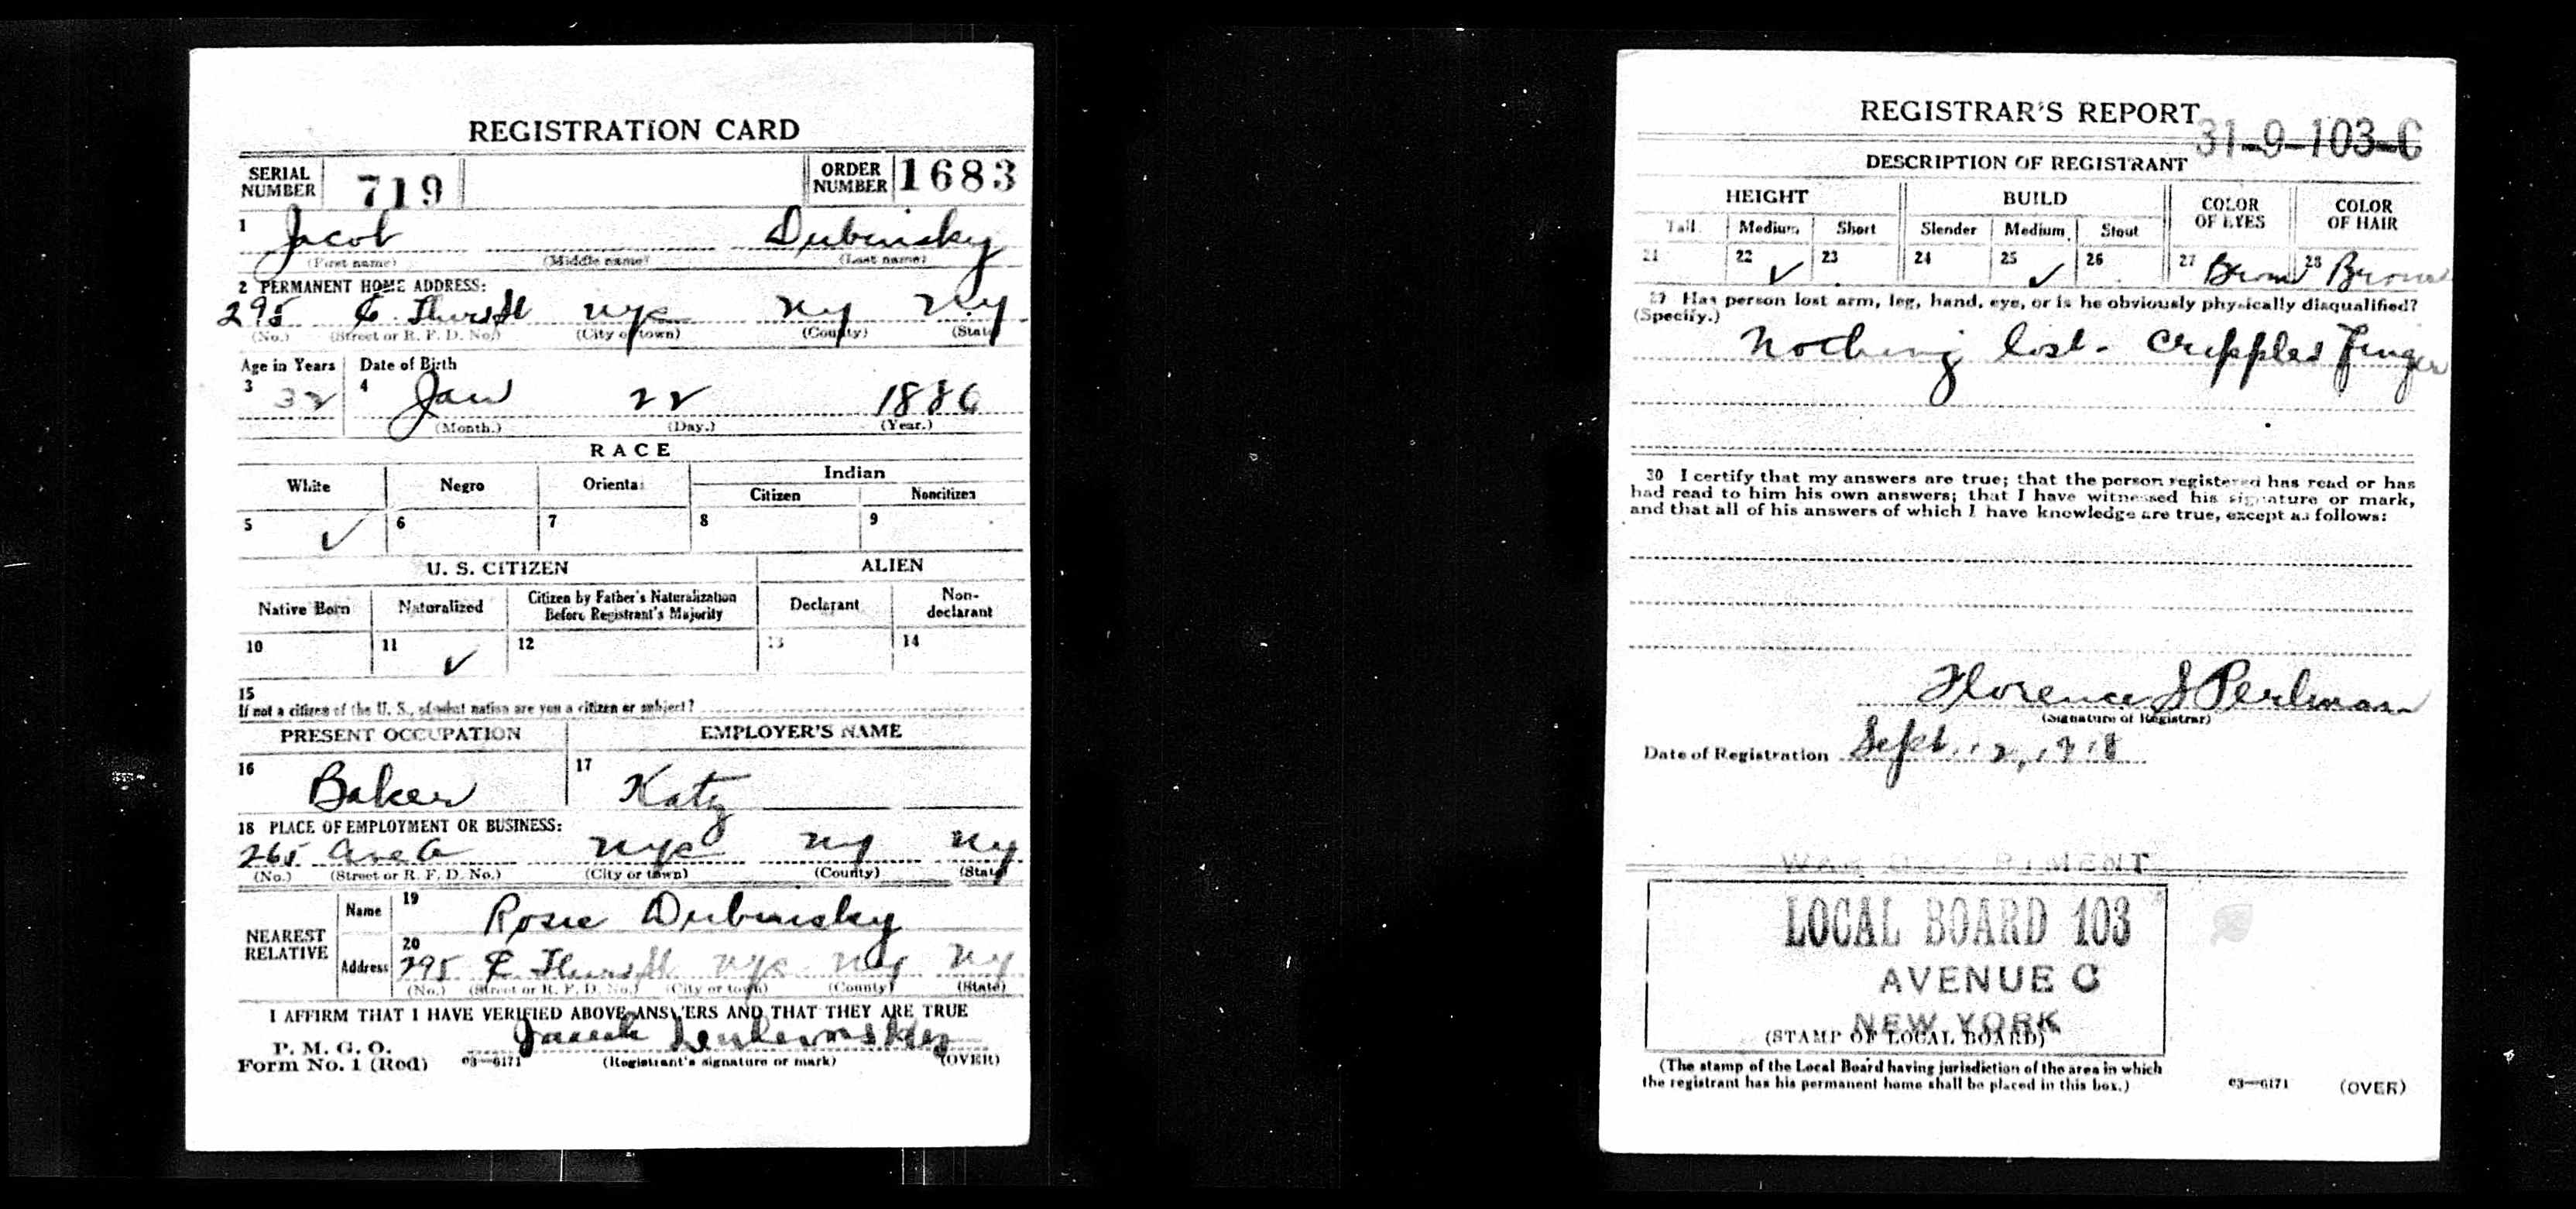 REGISTRATION CARD
SERIAL NUMBER 719 ORDER NUMBER 1683
1 Jacob Dubinsky
(First name) (Middle name) (Last name)
2 PERMANENT HOME ADDRESS:
295 E. St nyc ny ny
(No.) (Street or R. F. D. No.) (City or town) (County) (State)
Age in Years Date of Birth
3 32 4 Jan 22 1886
(Month.) (Day.) (Year.)
RACE
White Negro Oriental Indian
Citizen Noncitizen
5 ✓ 6 7 8 9
U. S. CITIZEN ALIEN
Native Born Naturalized Citizen by Father's Naturalization Before Registrant's Majority Declarant Non-declarant
10 11 ✓ 12 13 14
15
If not a citizen of the U. S., of what nation are you a citizen or subject?
PRESENT OCCUPATION EMPLOYER'S NAME
16 Baker 17 Katz
18 PLACE OF EMPLOYMENT OR BUSINESS:
265 Ave nyc ny ny
(No.) (Street or R. F. D. No.) (City or town) (County) (State)
NEAREST RELATIVE
Name 19 Rosie Dubinsky
Address 20 295 E St nyc ny ny
(No.) (Street or R. F. D. No.) (City or town) (County) (State)
I AFFIRM THAT I HAVE VERIFIED ABOVE ANSWERS AND THAT THEY ARE TRUE
P. M. G. O.
Form No. 1 (Red) 03—6171 (Registrant's signature or mark) (OVER)
REGISTRAR'S REPORT
31-9-103-C
DESCRIPTION OF REGISTRANT
HEIGHT BUILD COLOR OF EYES COLOR OF HAIR
Tall Medium Short Slender Medium Stout
21 22 ✓ 23 24 25 ✓ 26 27 Brown 28 Brown
29 Has person lost arm, leg, hand, eye, or is he obviously physically disqualified?
(Specify.)
Nothing lost. Crippled Finger
30 I certify that my answers are true; that the person registered has read or has
had read to him his own answers; that I have witnessed his signature or mark,
and that all of his answers of which I have knowledge are true, except as follows:
Florence S Perlman
(Signature of Registrar)
Date of Registration Sept. 12, 1918
WAR DEPARTMENT
LOCAL BOARD 103
AVENUE C
NEW YORK
(STAMP OF LOCAL BOARD)
(The stamp of the Local Board having jurisdiction of the area in which
the registrant has his permanent home shall be placed in this box.)
03—6171 (OVER)